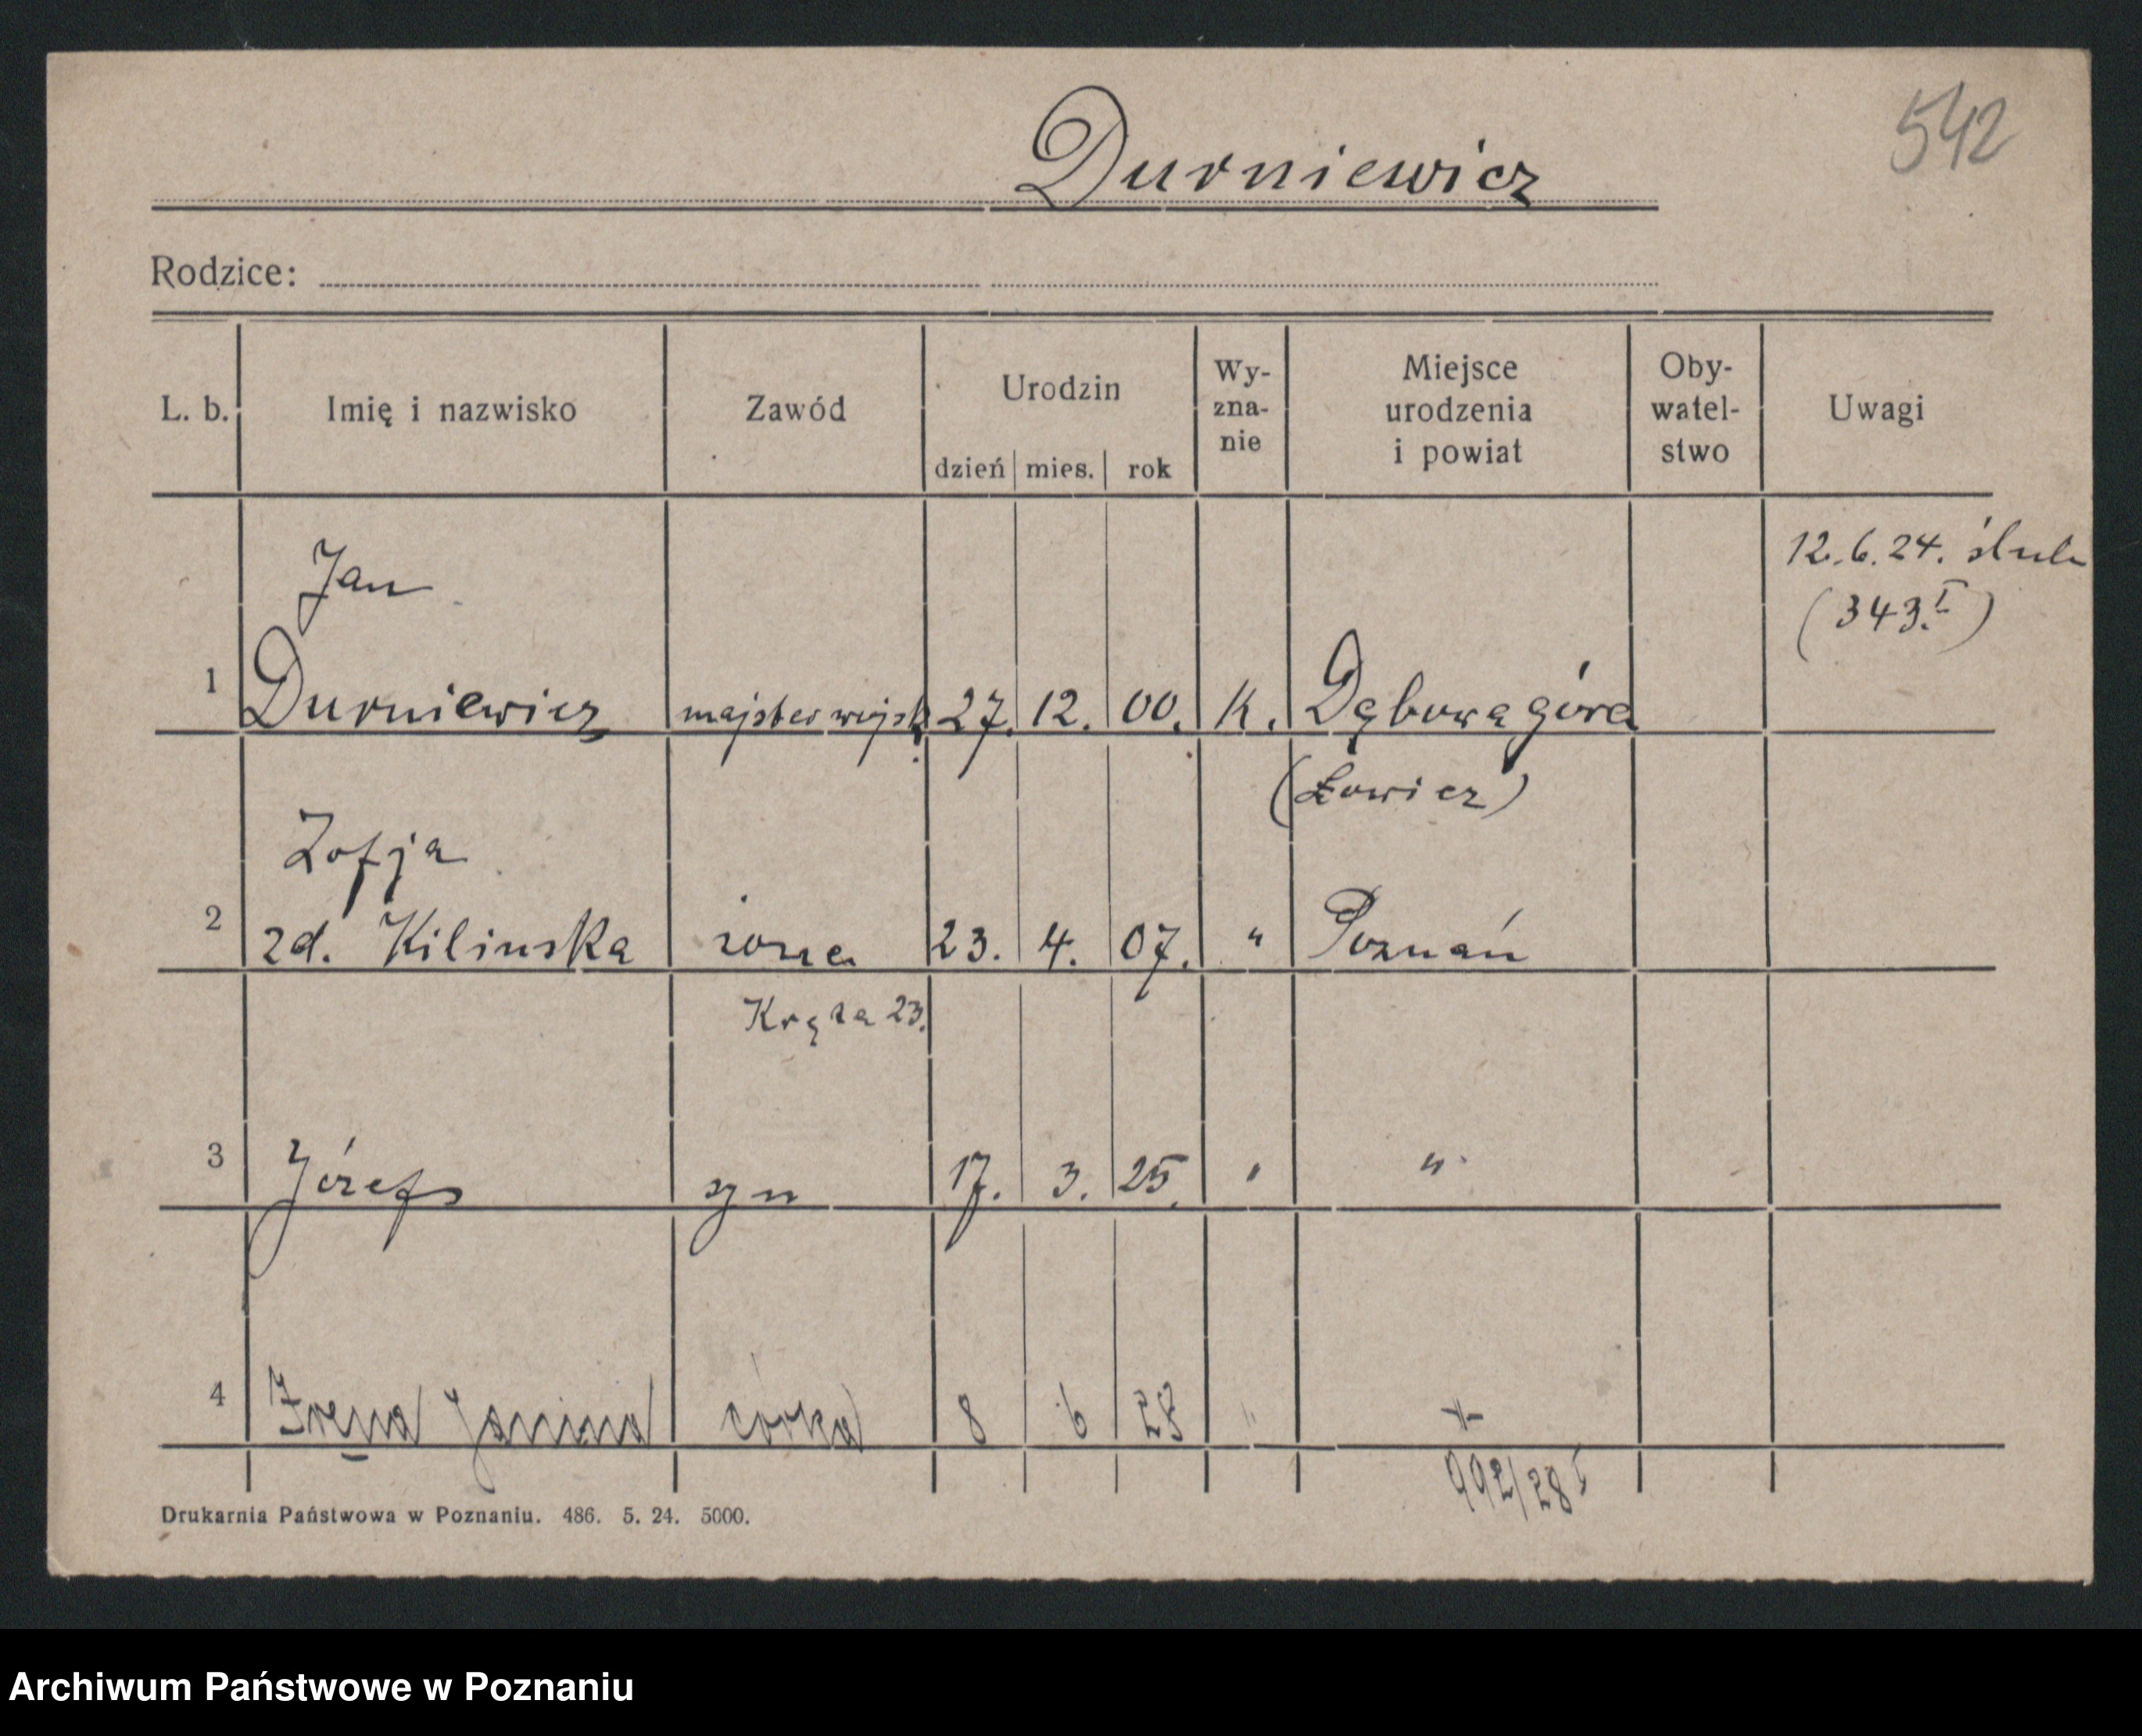 542
Durniewicz
Rodzice:
L. b. Imię i nazwisko Zawód Urodzin dzień mies. rok Wy-zna-nie Miejsce urodzenia i powiat Oby-watel-stwo Uwagi
12.6.24. ślub
(343.I)
Jan
1 Durniewicz majster wojsk. 27. 12. 00. K. Dąbowa góra
(Łowicz)
Zofja
2 zd. Kilinska żona 23. 4. 07. " Poznań
23.
3 Józef syn 17. 3. 25. " "
4 Irena Janina córka 8 6 28 " "
992/28 I
Drukarnia Państwowa w Poznaniu. 486. 5. 24. 5000.
Archiwum Państwowe w Poznaniu